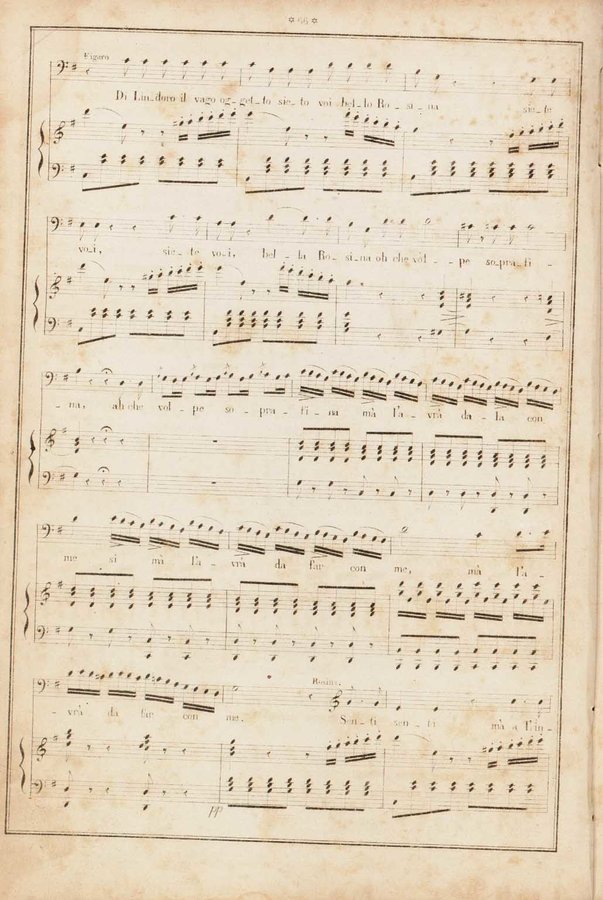 66
Figaro
Di Lin_doro il vago og_get_to sie_te voi bel_lo Ro_si_na sie_te
vo_i, sie_te vo_i, bel_la Ro_si_na oh che vol_pe so_pra_fi_
_na, ah che vol_pe so_pra_fi_na mà l'a_vrà da_la con
me si mà l'a_vrà da far con me, mà l'a_
Rosina.
_vrà da far con me. Sen_ti sen_ti mà a Lin_
pp